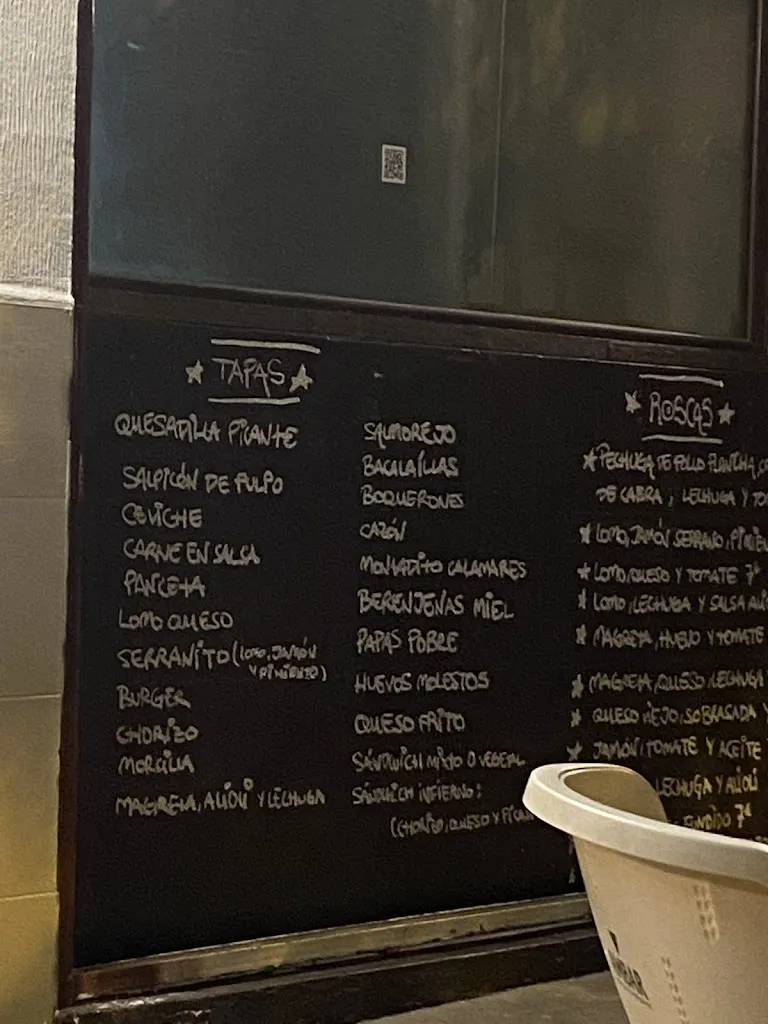 TAPAS
QUESADILLA PICANTE
SALPICÓN DE PULPO
CEVICHE
CARNE EN SALSA
PANCETA
LOMO QUESO
SERRANITO (LOMO, JAMÓN
Y PIMIENTO)
BURGER
CHORIZO
MORCILLA
MAGRETA, ALIOLI Y LECHUGA
SALMOREJO
BACALAÍLLAS
BOQUERONES
CAZÓN
MONTADITO CALAMARES
BERENJENAS MIEL
PAPAS POBRE
HUEVOS MOLESTOS
QUESO FRITO
SÁNDWICH MIXTO O VEGETAL
SÁNDWICH INFIERNO:
(CHORIZO, QUESO Y PICAN
ROSCAS
PECHUGA DE POLLO PLANCHA,
DE CABRA, LECHUGA Y TO
LOMO, JAMÓN SERRANO, PIMIEN
LOMO, QUESO Y TOMATE 7€
LOMO, LECHUGA Y SALSA ALIO
MAGRETA, HUEVO Y TOMATE
MAGRETA, QUESO, LECHUGA
QUESO VIEJO, SOBRASADA Y
JAMÓN, TOMATE Y ACEITE
LECHUGA Y ALIOLI
FUNDIDO 7€